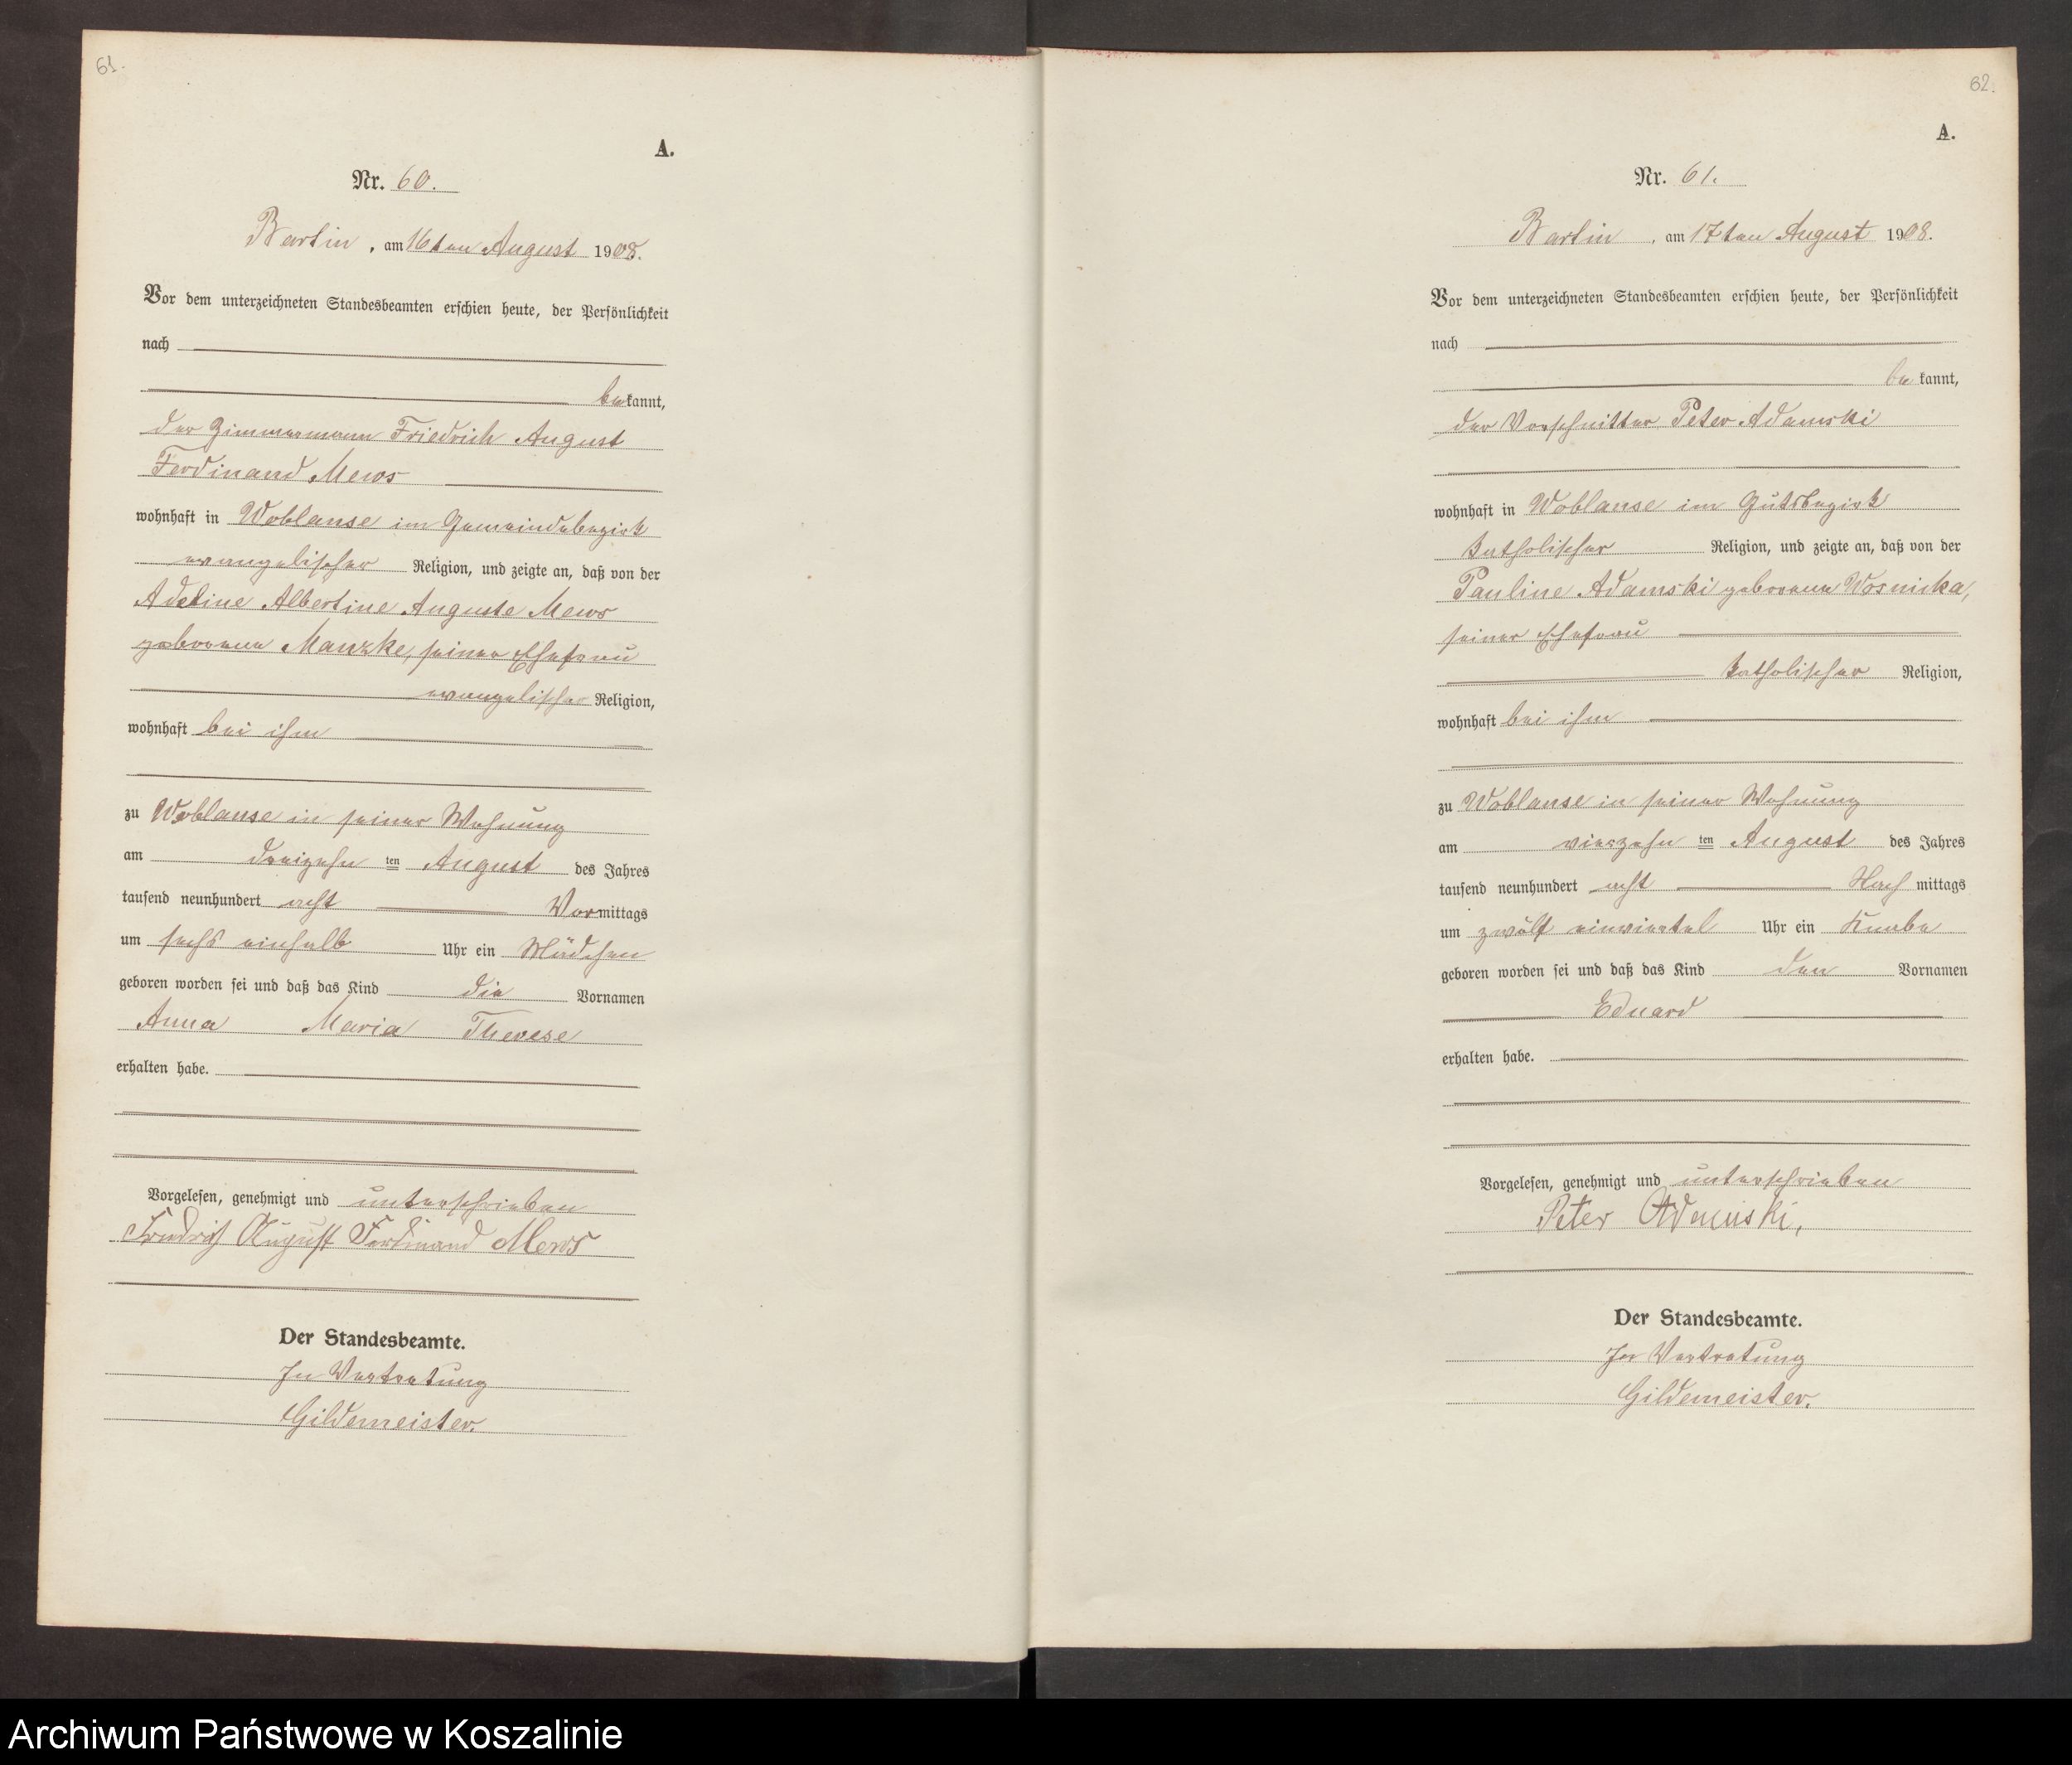 61.
A.
Nr. 60.
Bartin, am 16ten August 1908.
Vor dem unterzeichneten Standesbeamten erschien heute, der Persönlichkeit
nach
bekannt,
der Zimmermann Friedrich August
Ferdinand Mews
wohnhaft in Woblanse im Gemeindebezirk
evangelischer Religion, und zeigte an, daß von der
Adeline Albertine Auguste Mews
geborene Manzke, seiner Ehefrau
evangelischer Religion,
wohnhaft bei ihm
zu Woblanse in seiner Wohnung
am dreizehn ten August des Jahres
tausend neunhundert acht Vormittags
um sechs einhalb Uhr ein Mädchen
geboren worden sei und daß das Kind die Vornamen
Anna Maria Therese
erhalten habe.
Vorgelesen, genehmigt und unterschrieben
Friedrich August Ferdinand Mews
Der Standesbeamte.
In Vertretung
Gildemeister.
62.
A.
Nr. 61.
Bartin, am 17ten August 1908.
Vor dem unterzeichneten Standesbeamten erschien heute, der Persönlichkeit
nach
bekannt,
der Vorschnitter Peter Adamski
wohnhaft in Woblanse im Gutsbezirk
katholischer Religion, und zeigte an, daß von der
Pauline Adamski geborene Wosnicka,
seiner Ehefrau
katholischer Religion,
wohnhaft bei ihm
zu Woblanse in seiner Wohnung
am vierzehn ten August des Jahres
tausend neunhundert acht Nachmittags
um zwölf einviertel Uhr ein Knabe
geboren worden sei und daß das Kind den Vornamen
Eduard
erhalten habe.
Vorgelesen, genehmigt und unterschrieben
Peter Adamski,
Der Standesbeamte.
In Vertretung
Gildemeister.
Archiwum Państwowe w Koszalinie